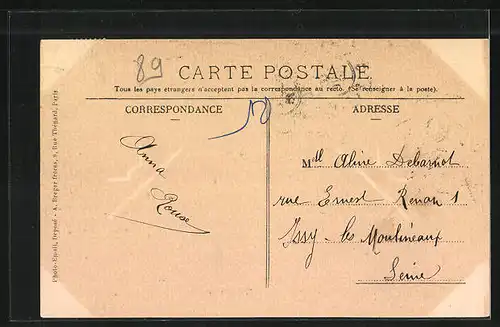 89
CARTE POSTALE
Tous les pays étrangers n'acceptent pas la correspondance au recto. (Se renseigner à la poste).
CORRESPONDANCE
ADRESSE
Anna
Mlle Aline
rue Ernest Renan 1
Issy-les Moulineaux
Seine
Photo-Email, Déposé - A. Breger frères, 9, Rue Thénard, Paris